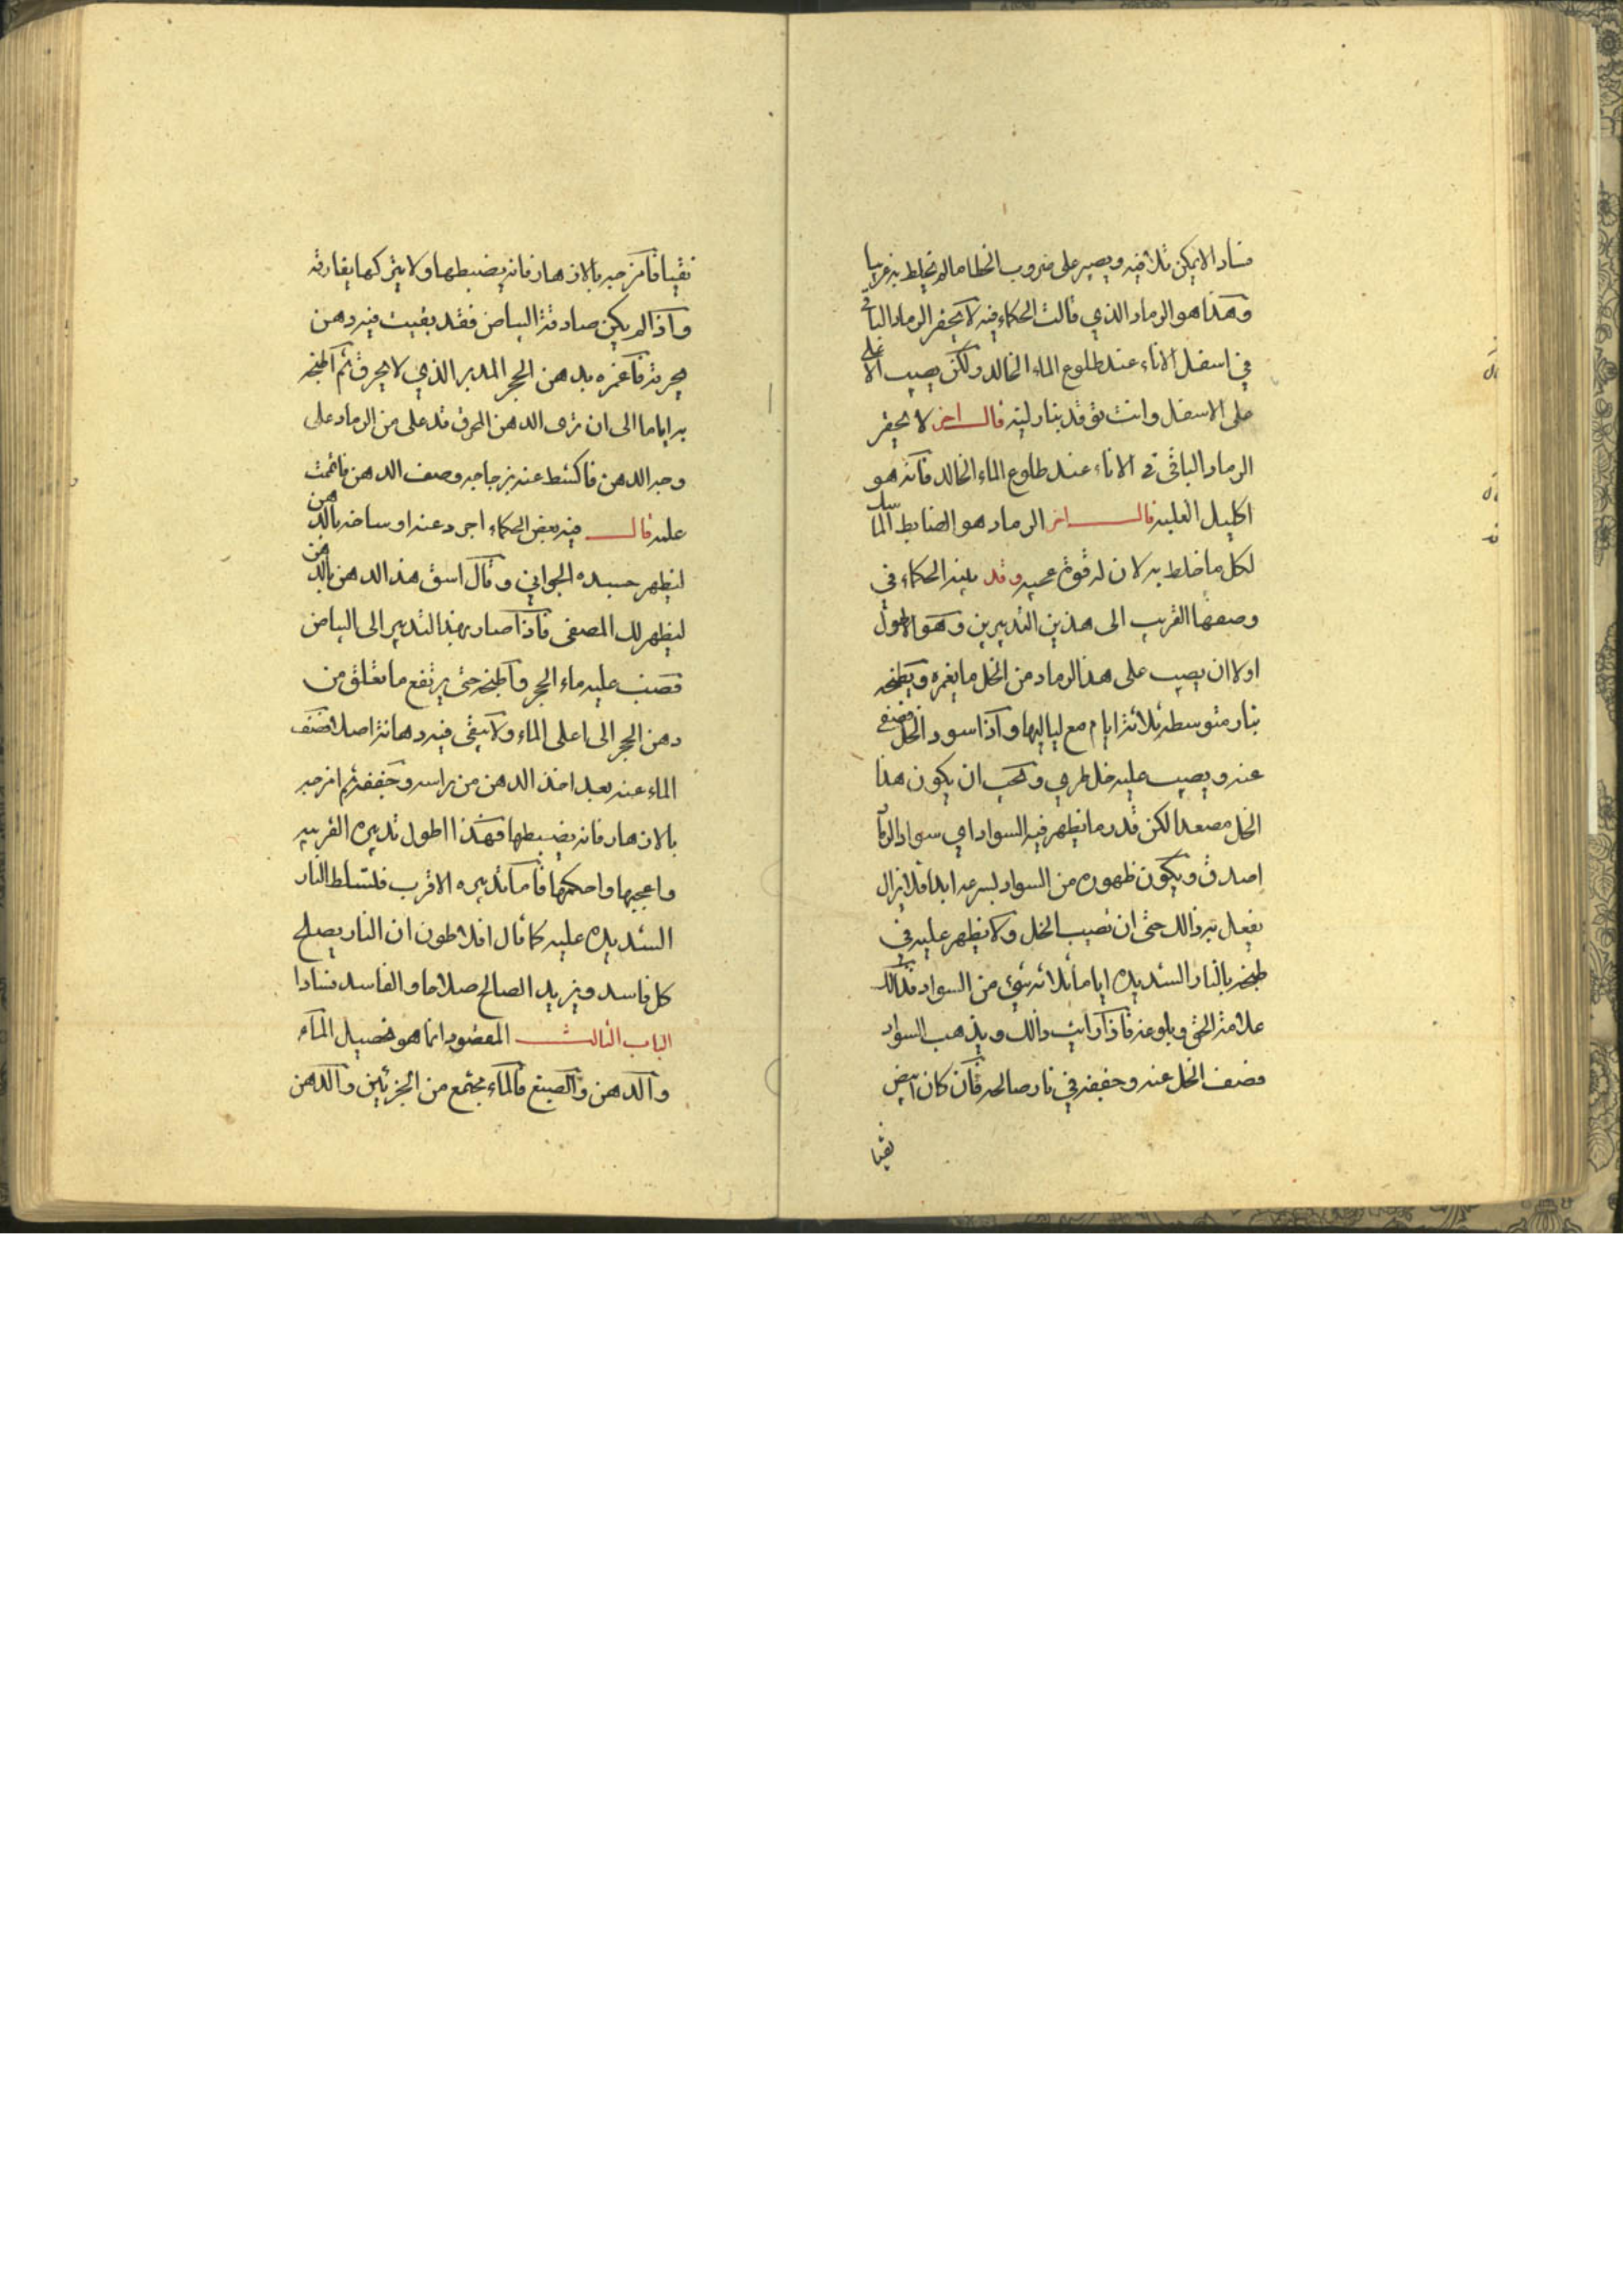 فسادا لا يمكن تلافيه ويصير على ضروب الخلط ما لم تخلط به غريبا
وهذا هو الرماد الذي قالت الحكماء فيه لا تحقر الرماد الباقي
في اسفل الاناء عند طلوع الماء الخالد ولكن يصب الاعلى
على الاسفل وانت توقد بنار لينه قال اخر لا تحقر
الرماد الباقي في الاناء عند طلوع الماء الخالد فانه هو
اكليل الغلبه قال اخر الرماد هو الضابط الماسك
لكل ما خلط به لان له قوة عجيبه وقد بينه الحكماء في
وصفها القريب الى هذين التدبيرين وهو الاطول
اولا ان يصب على هذا الرماد من الخل ما يغمره ويطبخه
بنار متوسطه ثلاثة ايام مع لياليها واذا اسود الخل فصفى
عنه ويصب عليه خل طري ويجب ان يكون هذا
الخل مصعدا لكن قدر ما يظهر فيه السواد اي سواد الرما
اصدق ويكون ظهوره من السواد بسرعه ابدا فلا يزال
يفعل به ذالك حتى ان تصيب الخل ولا يظهر عليه في
طبخه بالنار الشديده اياما ثلاثه شئ من السواد فذالك
علامة الحق وبلوغه فاذا رايت ذالك ويذهب السواد
فصف الخل عنه وجففه في نار صالحه فان كان ابيض
نقيا
نقيا فامزجه بالازهار فانه يضبطها ولا يتركها يفارقه
واذا لم يكن صادقة البياض فقد بقيت فيه دهن
يحرقه فاغمره بدهن الحجر المدبر الذي لا يحرق ثم اطبخه
به اياما الى ان ترى الدهن المحرق قد على من الرماد على
وجه الدهن فاكشط عنه بزجاجه وصف الدهن
عليه قال فيه بعض الحكماء اجرد عنه اوساخه بالدهن
ليظهر جسده الجواني وقال اسق هذا الدهن بالدهن
ليظهر لك المصفى فاذا صار بهذا التدبير الى البياض
فصب عليه ماء الحجر واطبخه حتى يرتفع ما تعلق من
دهن الحجر الى اعلى الماء ولا يبقى فيه دهانة اصلا فصف
الماء عنه بعد اخذ الدهن من راسه وجففه ثم امزجه
بالازهار فانه يضبطها فهذا اطول تدبيره القريبه
واعجبها واحكمها فاما تدبيره الاقرب فلتسلط النار
الشديده عليه كما قال افلاطون ان النار يصلح
كل فاسد ويزيد الصالح صلاحا والفاسد فسادا
الباب الثالث المقصود انما هو تحصيل الماء
والدهن والصبغ فالماء مجتمع من الجزئين والدهن